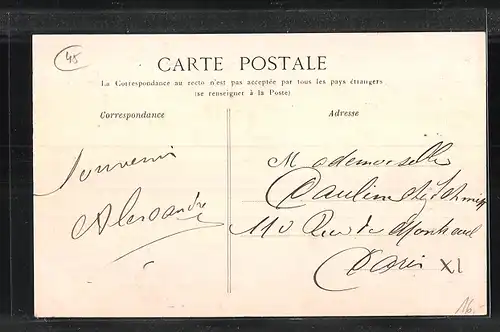 45
CARTE POSTALE
La Correspondance au recto n'est pas acceptée par tous les pays étrangers
(se renseigner à la Poste)
Correspondance
Adresse
Souvenir
Alexandre
Mademoiselle
Pauline
110 Rue de Montreuil
Paris XI